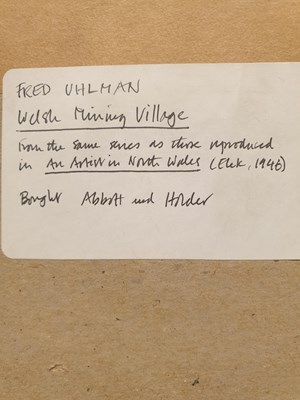 FRED UHLMAN
Welsh Mining Village
From the same series as those reproduced
in An Artist in North Wales (Elek, 1946)
Bought Abbott and Holder